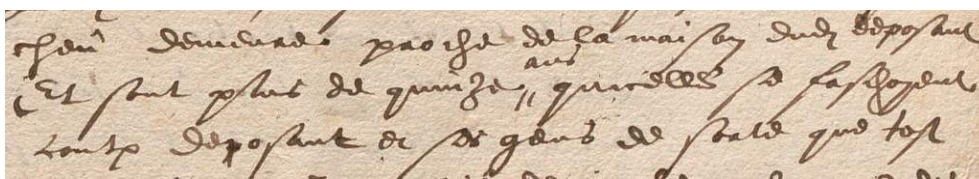 cheu demeure proche de la maison dud deposant
Et sont plus de quinze ans quicelles se faschoyent
cont deposant et ses gens de sorte que tost